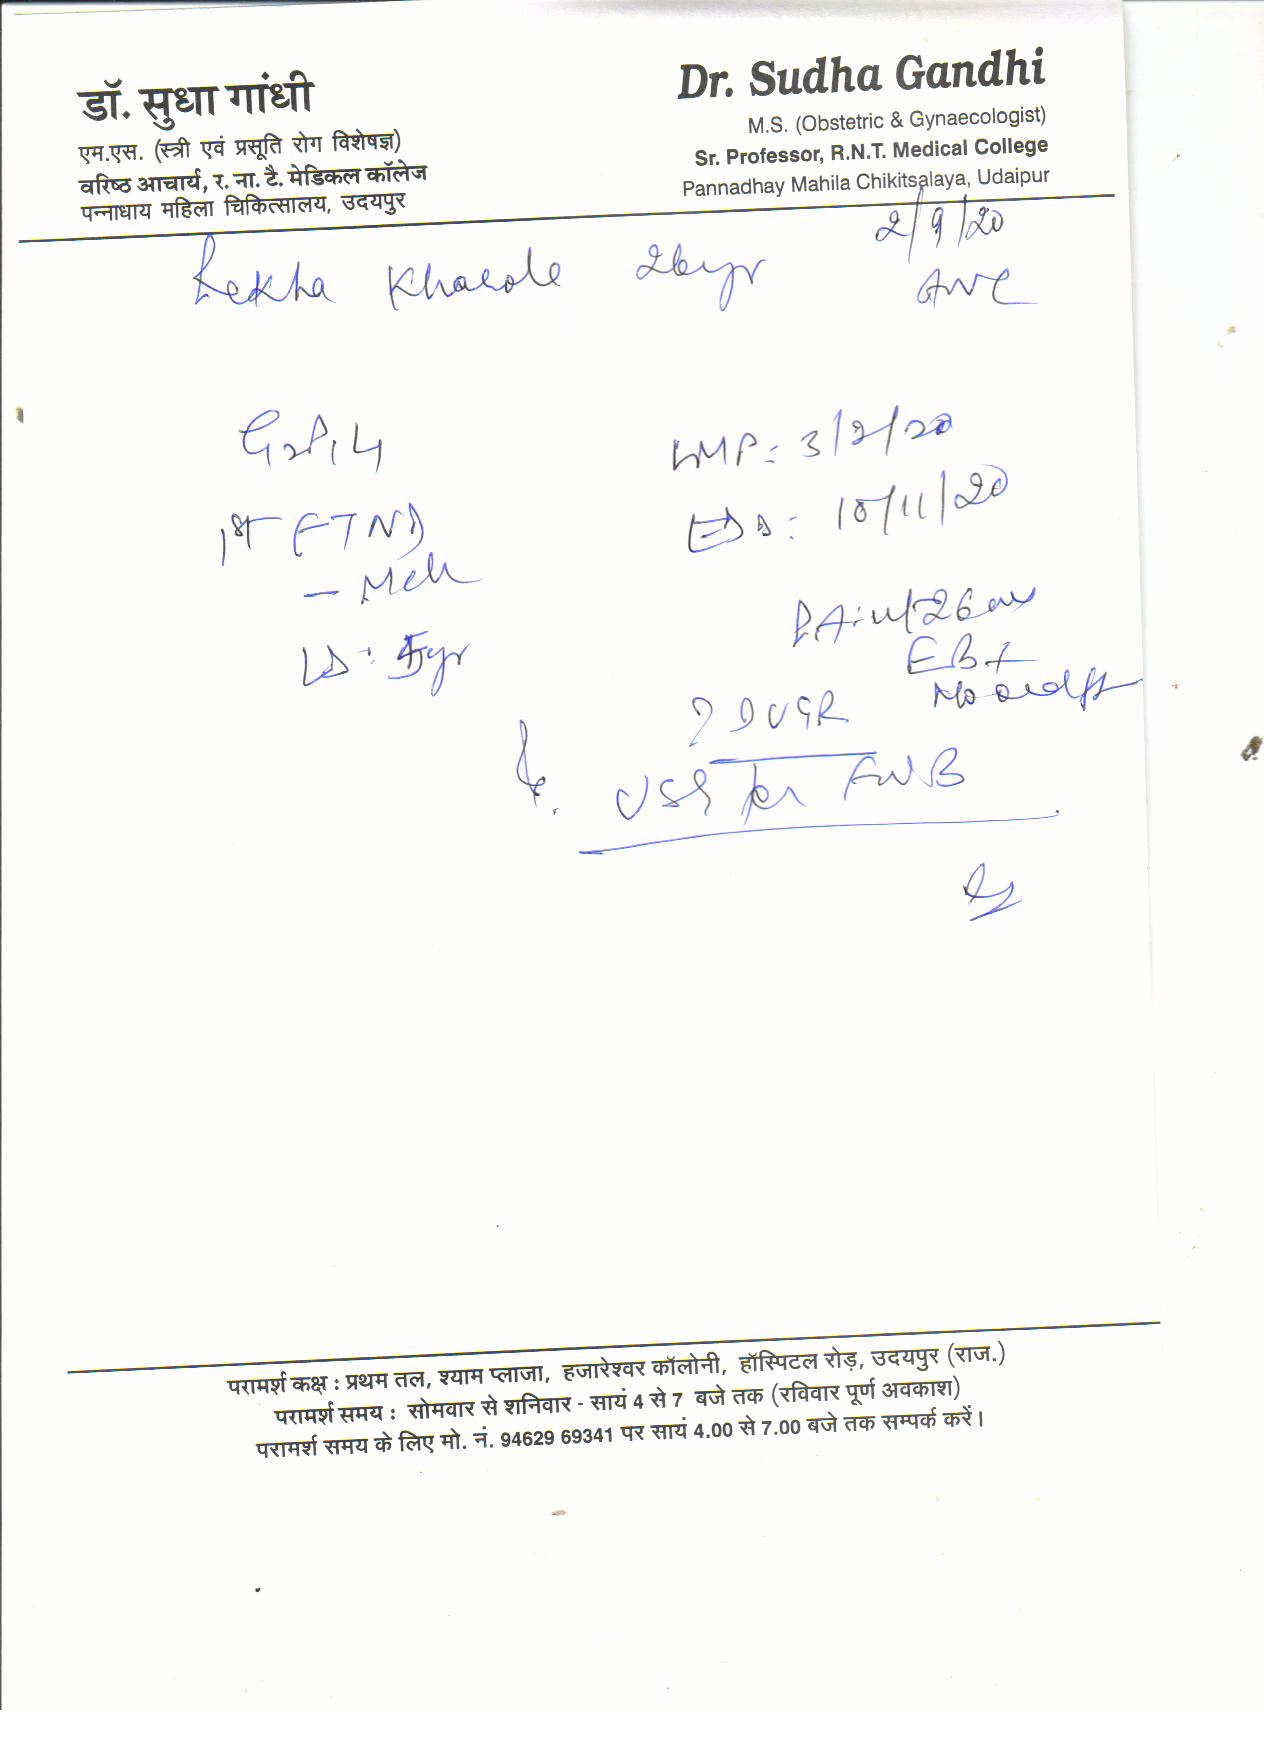 डॉ. सुधा गांधी
एम.एस. (स्त्री एवं प्रसूति रोग विशेषज्ञ)
वरिष्ठ आचार्य, र. ना. टै. मेडिकल कॉलेज
पन्नाधाय महिला चिकित्सालय, उदयपुर
Dr. Sudha Gandhi
M.S. (Obstetric & Gynaecologist)
Sr. Professor, R.N.T. Medical College
Pannadhay Mahila Chikitsalaya, Udaipur
2/9/20
Rekha 26yr
ANC
G2P1L1
LMP: 3/2/20
1st FTND
EDD: 10/11/20
- Mch
LD: 5yr
PA: ut 26
FB+
? IUGR
USG for FWB
परामर्श कक्ष : प्रथम तल, श्याम प्लाजा, हजारेश्वर कॉलोनी, हॉस्पिटल रोड़, उदयपुर (राज.)
परामर्श समय : सोमवार से शनिवार - सायं 4 से 7 बजे तक (रविवार पूर्ण अवकाश)
परामर्श समय के लिए मो. नं. 94629 69341 पर सायं 4.00 से 7.00 बजे तक सम्पर्क करें।